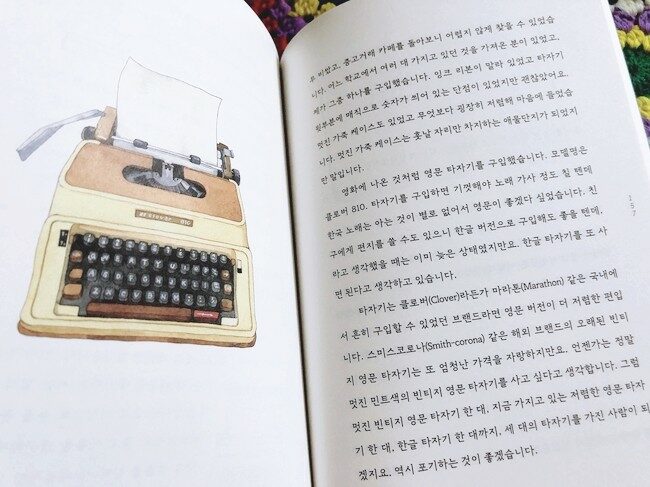 clover 810
무 비쌌고, 중고거래 카페를 돌아보니 어렵지 않게 찾을 수 있었습
니다. 어느 학교에서 여러 대 가지고 있던 것을 가져온 분이 있었고,
제가 그중 하나를 구입했습니다. 잉크 리본이 말라 있었고 타자기
윗부분에 매직으로 숫자가 씌어 있는 단점이 있었지만 괜찮았어요.
멋진 가죽 케이스도 있었고 무엇보다 굉장히 저렴해 마음에 들었습
니다. 멋진 가죽 케이스는 훗날 자리만 차지하는 애물단지가 되었지
만 말입니다.
영화에 나온 것처럼 영문 타자기를 구입했습니다. 모델명은
클로버 810. 타자기를 구입하면 기껏해야 노래 가사 정도 칠 텐데
한국 노래는 아는 것이 별로 없어서 영문이 좋겠다 싶었습니다. 친
구에게 편지를 쓸 수도 있으니 한글 버전으로 구입해도 좋을 텐데,
라고 생각했을 때는 이미 늦은 상태였지만요. 한글 타자기를 또 사
면 된다고 생각하고 있습니다.
타자기는 클로버(Clover)라든가 마라톤(Marathon) 같은 국내에
서 흔히 구입할 수 있었던 브랜드라면 영문 버전이 더 저렴한 편입
니다. 스미스코로나(Smith-corona) 같은 해외 브랜드의 오래된 빈티
지 영문 타자기는 또 엄청난 가격을 자랑하지만요. 언젠가는 정말
멋진 민트색의 빈티지 영문 타자기를 사고 싶다고 생각합니다. 그럼
멋진 빈티지 영문 타자기 한 대, 지금 가지고 있는 저렴한 영문 타자
기 한 대, 한글 타자기 한 대까지, 세 대의 타자기를 가진 사람이 되
겠지요. 역시 포기하는 것이 좋겠습니다.
157